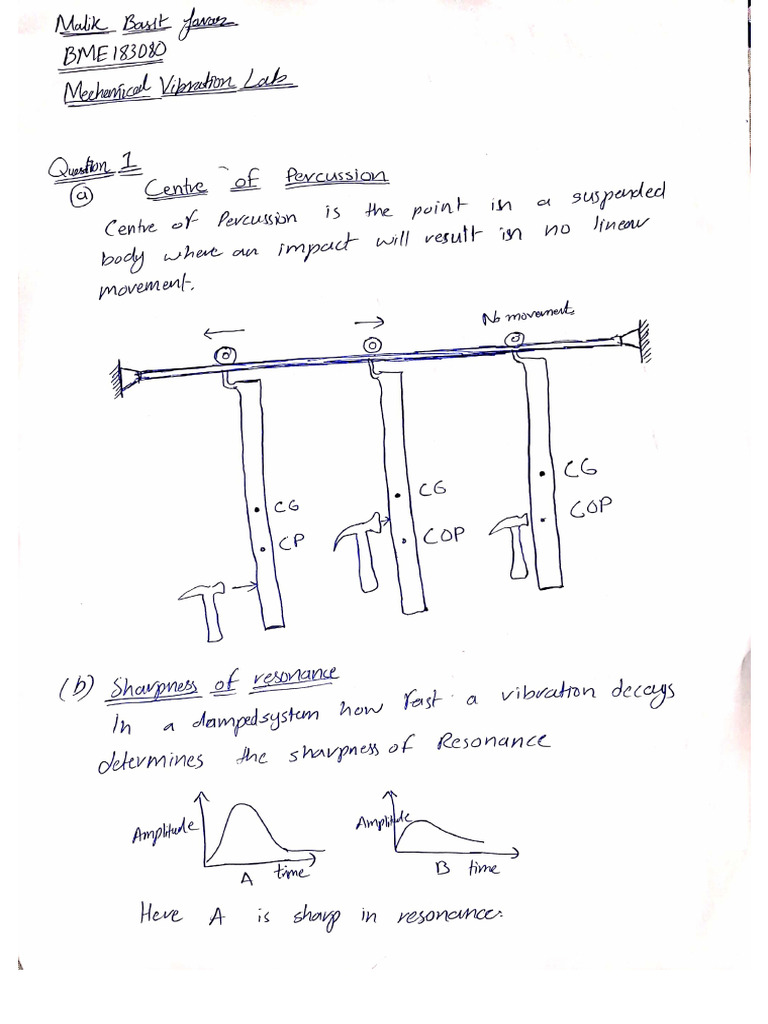 Malik Basit
BME183080
Mechanical Vibration Lab
Question 1
(a) Centre of Percussion
Centre of Percussion is the point in a suspended
body where an impact will result in no linear
movement.
No movement.
CG
CP
CG
COP
CG
COP
(b) Sharpness of resonance
In a damped system how fast a vibration decays
determines the sharpness of Resonance
Amplitude
A time
Amplitude
B time
Here A is sharp in resonance.